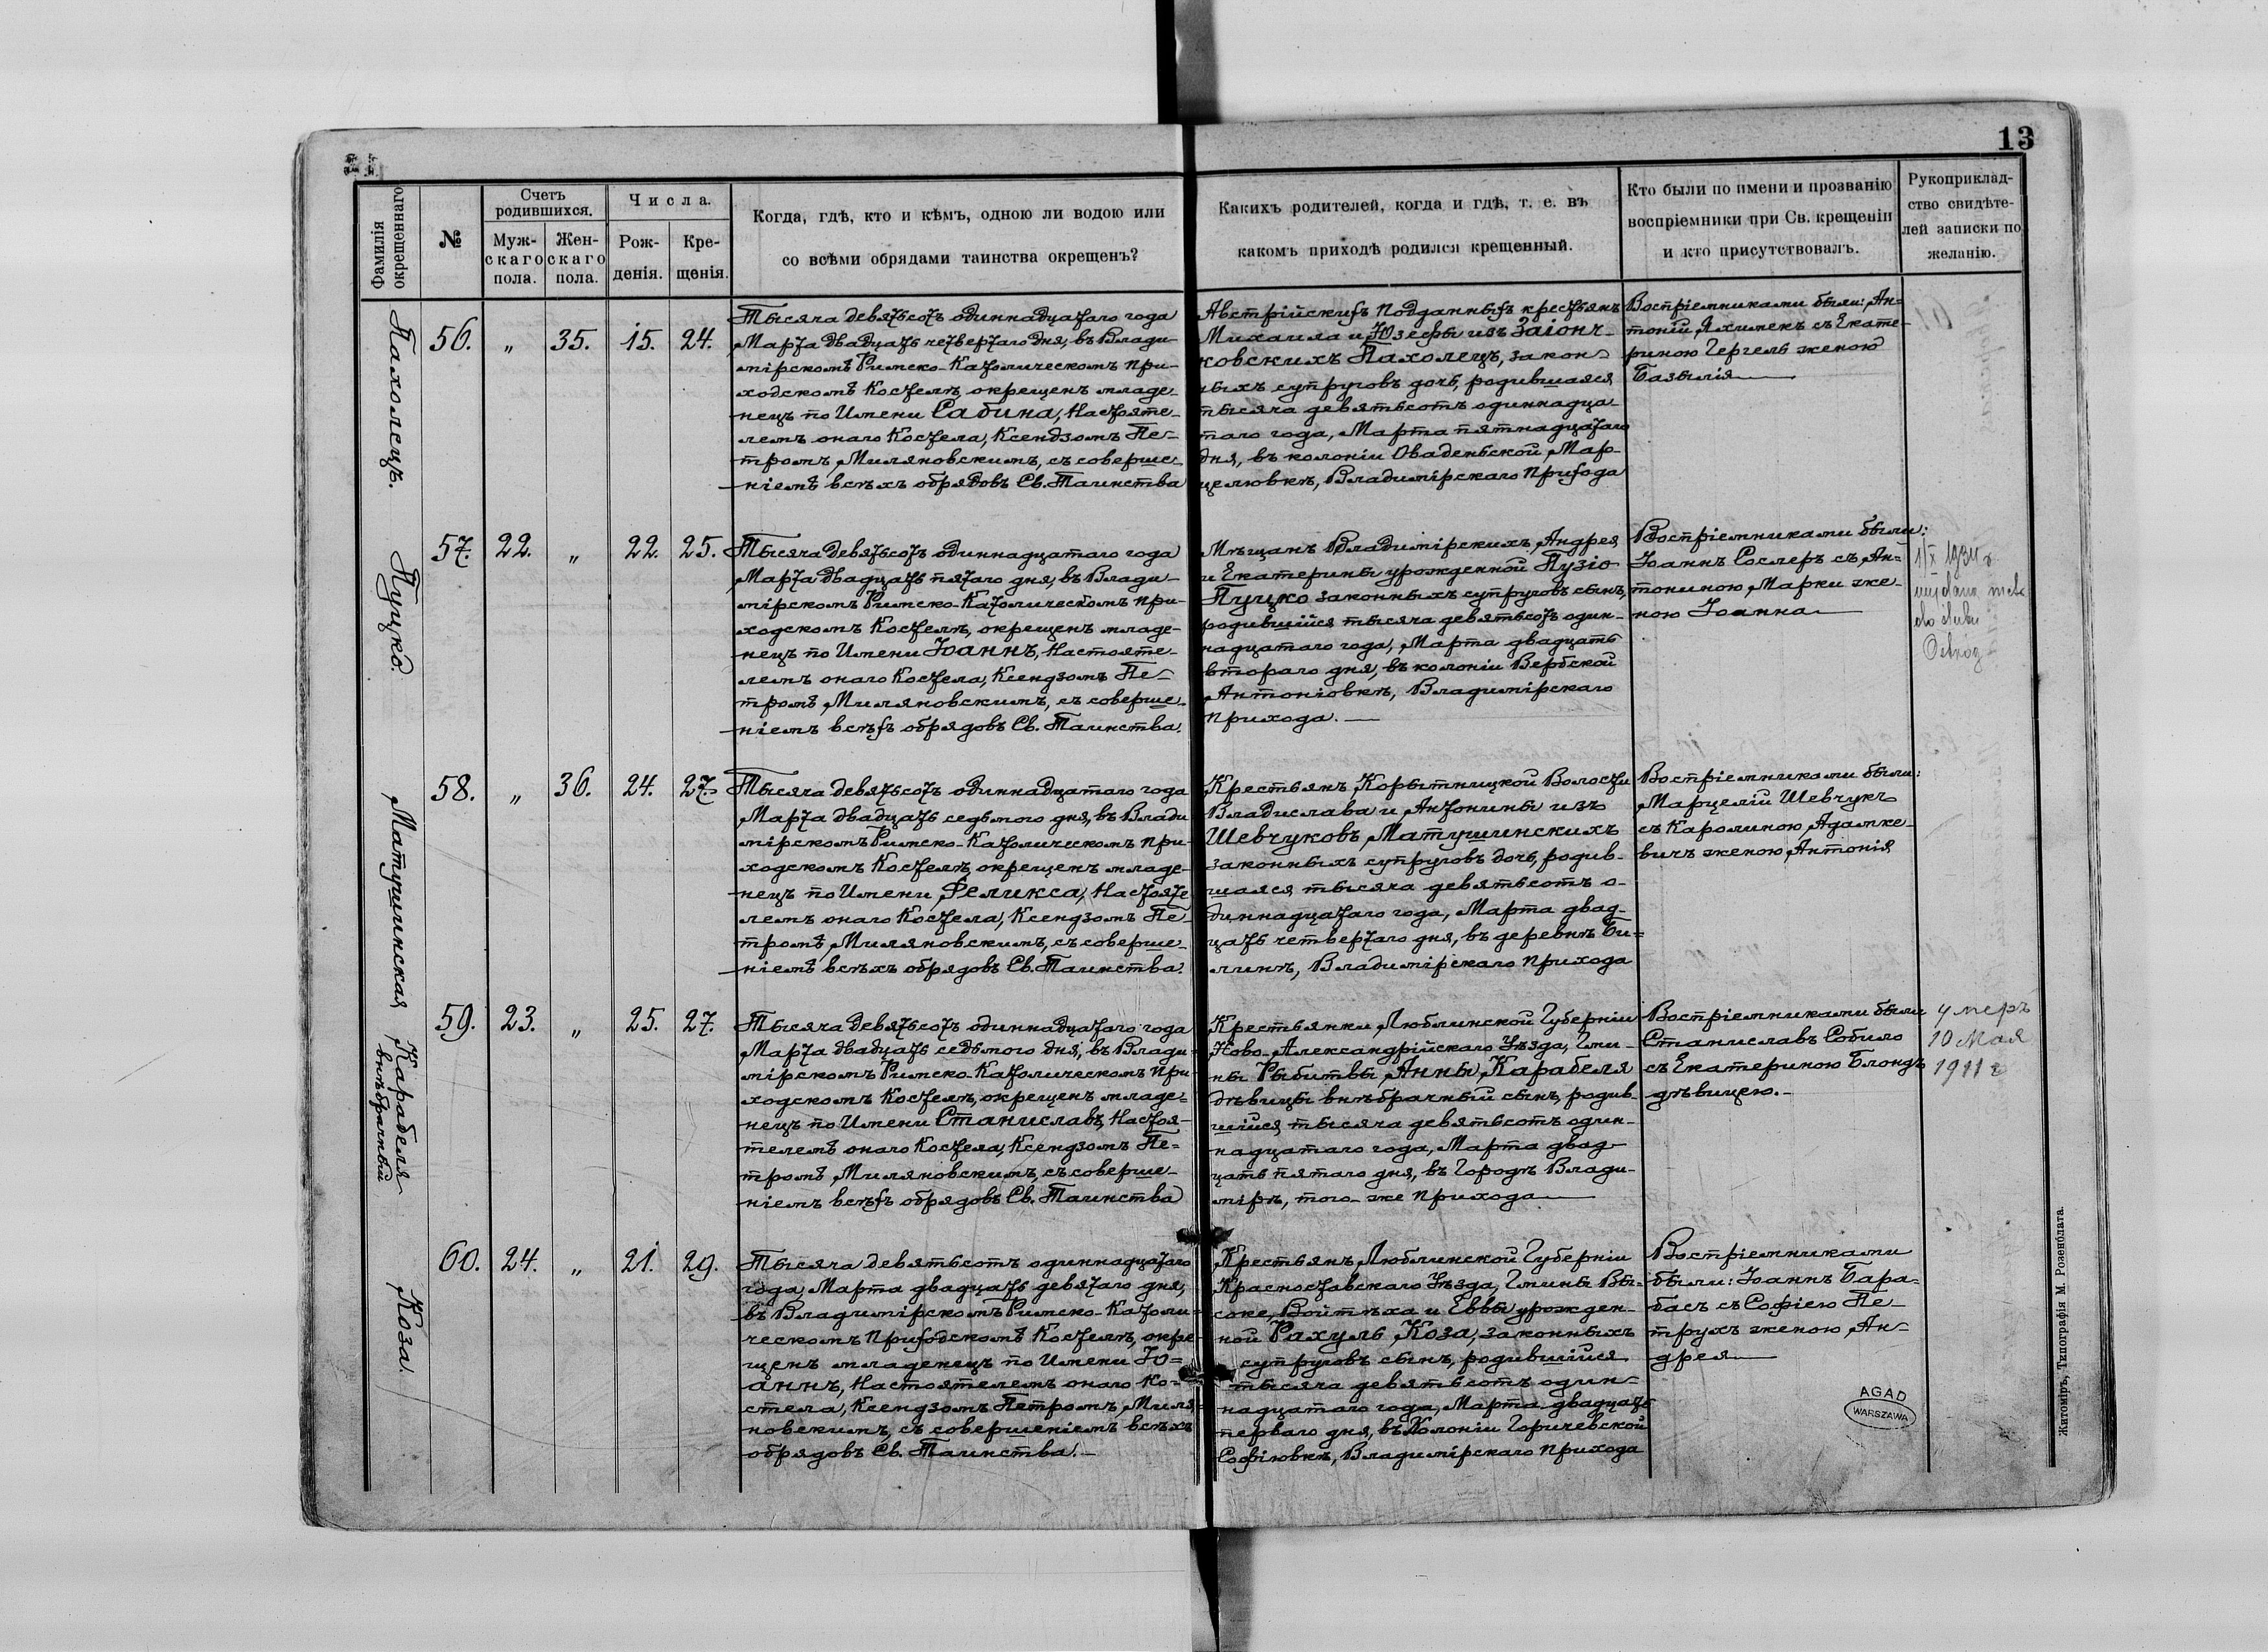 13
Фамилія
окрещеннаго
№
Счетъ
родившихся.
Муж-
скаго
пола.
Жен-
скаго
пола.
Числа.
Рож-
денія.
Кре-
щенія.
Когда, гдѣ, кто и кѣмъ, одною ли водою или
со всѣми обрядами таинства окрещенъ?
Какихъ родителей, когда и гдѣ, т. е. въ
какомъ приходѣ родился крещенный.
Кто были по имени и прозванію
воспріемники при Св. крещеніи
и кто присутствовалъ.
Рукоприклад-
ство свидѣте-
лей записки по
желанію.
Пахолецъ.
56. „ 35. 15. 24.
Тысяча девятьсотъ одиннадцатаго года
Марта двадцать четвертаго дня, въ Влади-
мірскомъ Римско-Католическомъ при-
ходскомъ Костелѣ, окрещенъ младе-
нецъ по Имени Сабина, Настояте-
лемъ онаго Костела, Ксендзомъ Пе-
тромъ Миляновскимъ, съ соверше-
ніемъ всѣхъ обрядовъ Св. Таинства
Австрійскихъ подданныхъ крестьянъ
Михаила и Юзефы изъ Заіонч-
ковскихъ Пахолецъ, закон-
ныхъ супруговъ дочь, родившаяся
тысяча девятьсотъ одиннадца-
таго года, Марта пятнадцатаго
дня, въ колоніи Оваденьской Мар-
целювкѣ, Владимірскаго Прихода
Воспріемниками были: Ан-
тоній Яхимек съ Екате-
риною Чергель женою
Базылія
Пуцко.
57. 22. „ 22. 25.
Тысяча девятьсотъ одиннадцатаго года
Марта двадцать пятаго дня, въ Влади-
мірскомъ Римско-Католическомъ при-
ходскомъ Костелѣ, окрещенъ младе-
нецъ по Имени Іоаннъ, Настояте-
лемъ онаго Костела, Ксендзомъ Пе-
тромъ Миляновскимъ, съ соверше-
ніемъ всѣхъ обрядовъ Св. Таинства.
Мѣщанъ Владимірскихъ, Андрея
и Екатерины урожденной Пузіо
Пуцко законныхъ супруговъ сынъ,
родившійся тысяча девятьсотъ один-
надцатаго года, Марта двадцать
втораго дня, въ колоніи Вербской
Антоніовкѣ, Владимірскаго
прихода.
Воспріемниками были:
Іоаннъ Сослеръ съ Ан-
тониною Марки же-
ною Іоанна
1/X 1934 r
wydano met
do ślubu
Матушинская
58. „ 36. 24. 27.
Тысяча девятьсотъ одиннадцатаго года
Марта двадцать седьмого дня, въ Влади
мірскомъ Римско-Католическомъ при-
ходскомъ Костелѣ, окрещенъ младе-
нецъ по Имени Феликса, Настояте
лемъ онаго Костела, Ксендзомъ Пе
тромъ Миляновскимъ, съ соверше-
ніемъ всѣхъ обрядовъ Св. Таинства.
Крестьянъ Корытницкой Волости
Владислава и Антонины изъ
Шевчуковъ Матушинскихъ
законныхъ супруговъ дочь, родив-
шаяся тысяча девятьсотъ о-
диннадцатаго года, Марта двад-
цать четвертаго дня, въ деревнѣ Би-
линѣ, Владимірскаго прихода
Воспріемниками были:
Марцелій Шевчукъ
съ Каролиною Адамке-
вичъ женою Антонія
Карабеля
внѣбрачный
59. 23. „ 25. 27.
Тысяча девятьсотъ одиннадцатаго года
Марта двадцать седьмого дня, въ Влади-
мірскомъ Римско-Католическомъ при-
ходскомъ Костелѣ, окрещенъ младе-
нецъ по Имени Станиславъ, Настоя-
телемъ онаго Костела, Ксендзомъ Пе-
тромъ Миляновскимъ, съ соверше-
ніемъ всѣхъ обрядовъ Св. Таинства
Крестьянки Люблинской Губерніи
Ново-Александрійскаго Уѣзда, Гми-
ны Рыбитвы, Анны Карабеля
дѣвицы внѣбрачный сынъ, родив-
шійся тысяча девятьсотъ один-
надцатаго года, Марта двад-
цать пятаго дня, въ Городѣ Влади-
мірѣ, того-же прихода
Воспріемниками были
Станиславъ Собило
съ Екатериною Блондъ
дѣвицею.
умеръ
10 Мая
1911 г
Коза.
60. 24. „ 21. 29.
Тысяча девятьсотъ одиннадцатаго
года, Марта двадцать девятаго дня,
въ Владимірскомъ Римско-Католи-
ческомъ Приходскомъ Костелѣ, окре-
щенъ младенецъ по Имени Іо-
аннъ, Настоятелемъ онаго Ко-
стела, Ксендзомъ Петромъ Миля-
новскимъ, съ совершеніемъ всѣхъ
обрядовъ Св. Таинства.
Крестьянъ Люблинской Губерніи
Красноставскаго Уѣзда, Гмины Вы-
соке, Войтѣха и Еввы урожден-
ной Рахуль Коза, законныхъ
супруговъ сынъ, родившійся
тысяча девятьсотъ один-
надцатаго года, Марта двадцать
перваго дня, въ Колоніи Горичевской
Софіювкѣ, Владимірскаго прихода
Воспріемниками
были: Іоаннъ Бара-
басъ съ Софіею Пе-
трухъ женою Ан-
дрея
AGAD
WARSZAWA
Житоміръ, Типографія М. Розенблата.